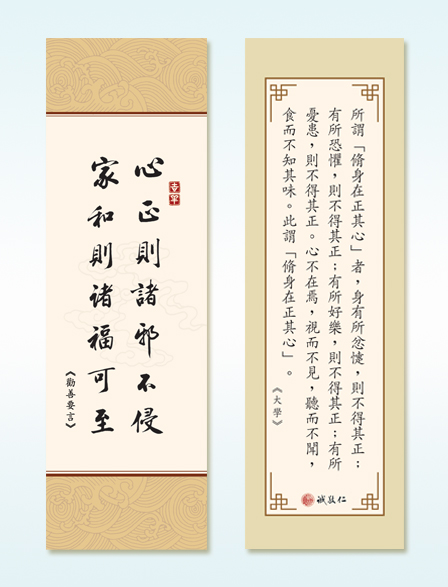 心正則諸邪不侵
家和則諸福可至
《勸善要言》
所謂「脩身在正其心」者，身有所忿懥，則不得其正；
有所恐懼，則不得其正；有所好樂，則不得其正；有所
憂患，則不得其正。心不在焉，視而不見，聽而不聞，
食而不知其味。此謂「脩身在正其心」。
《大學》
誠敬仁